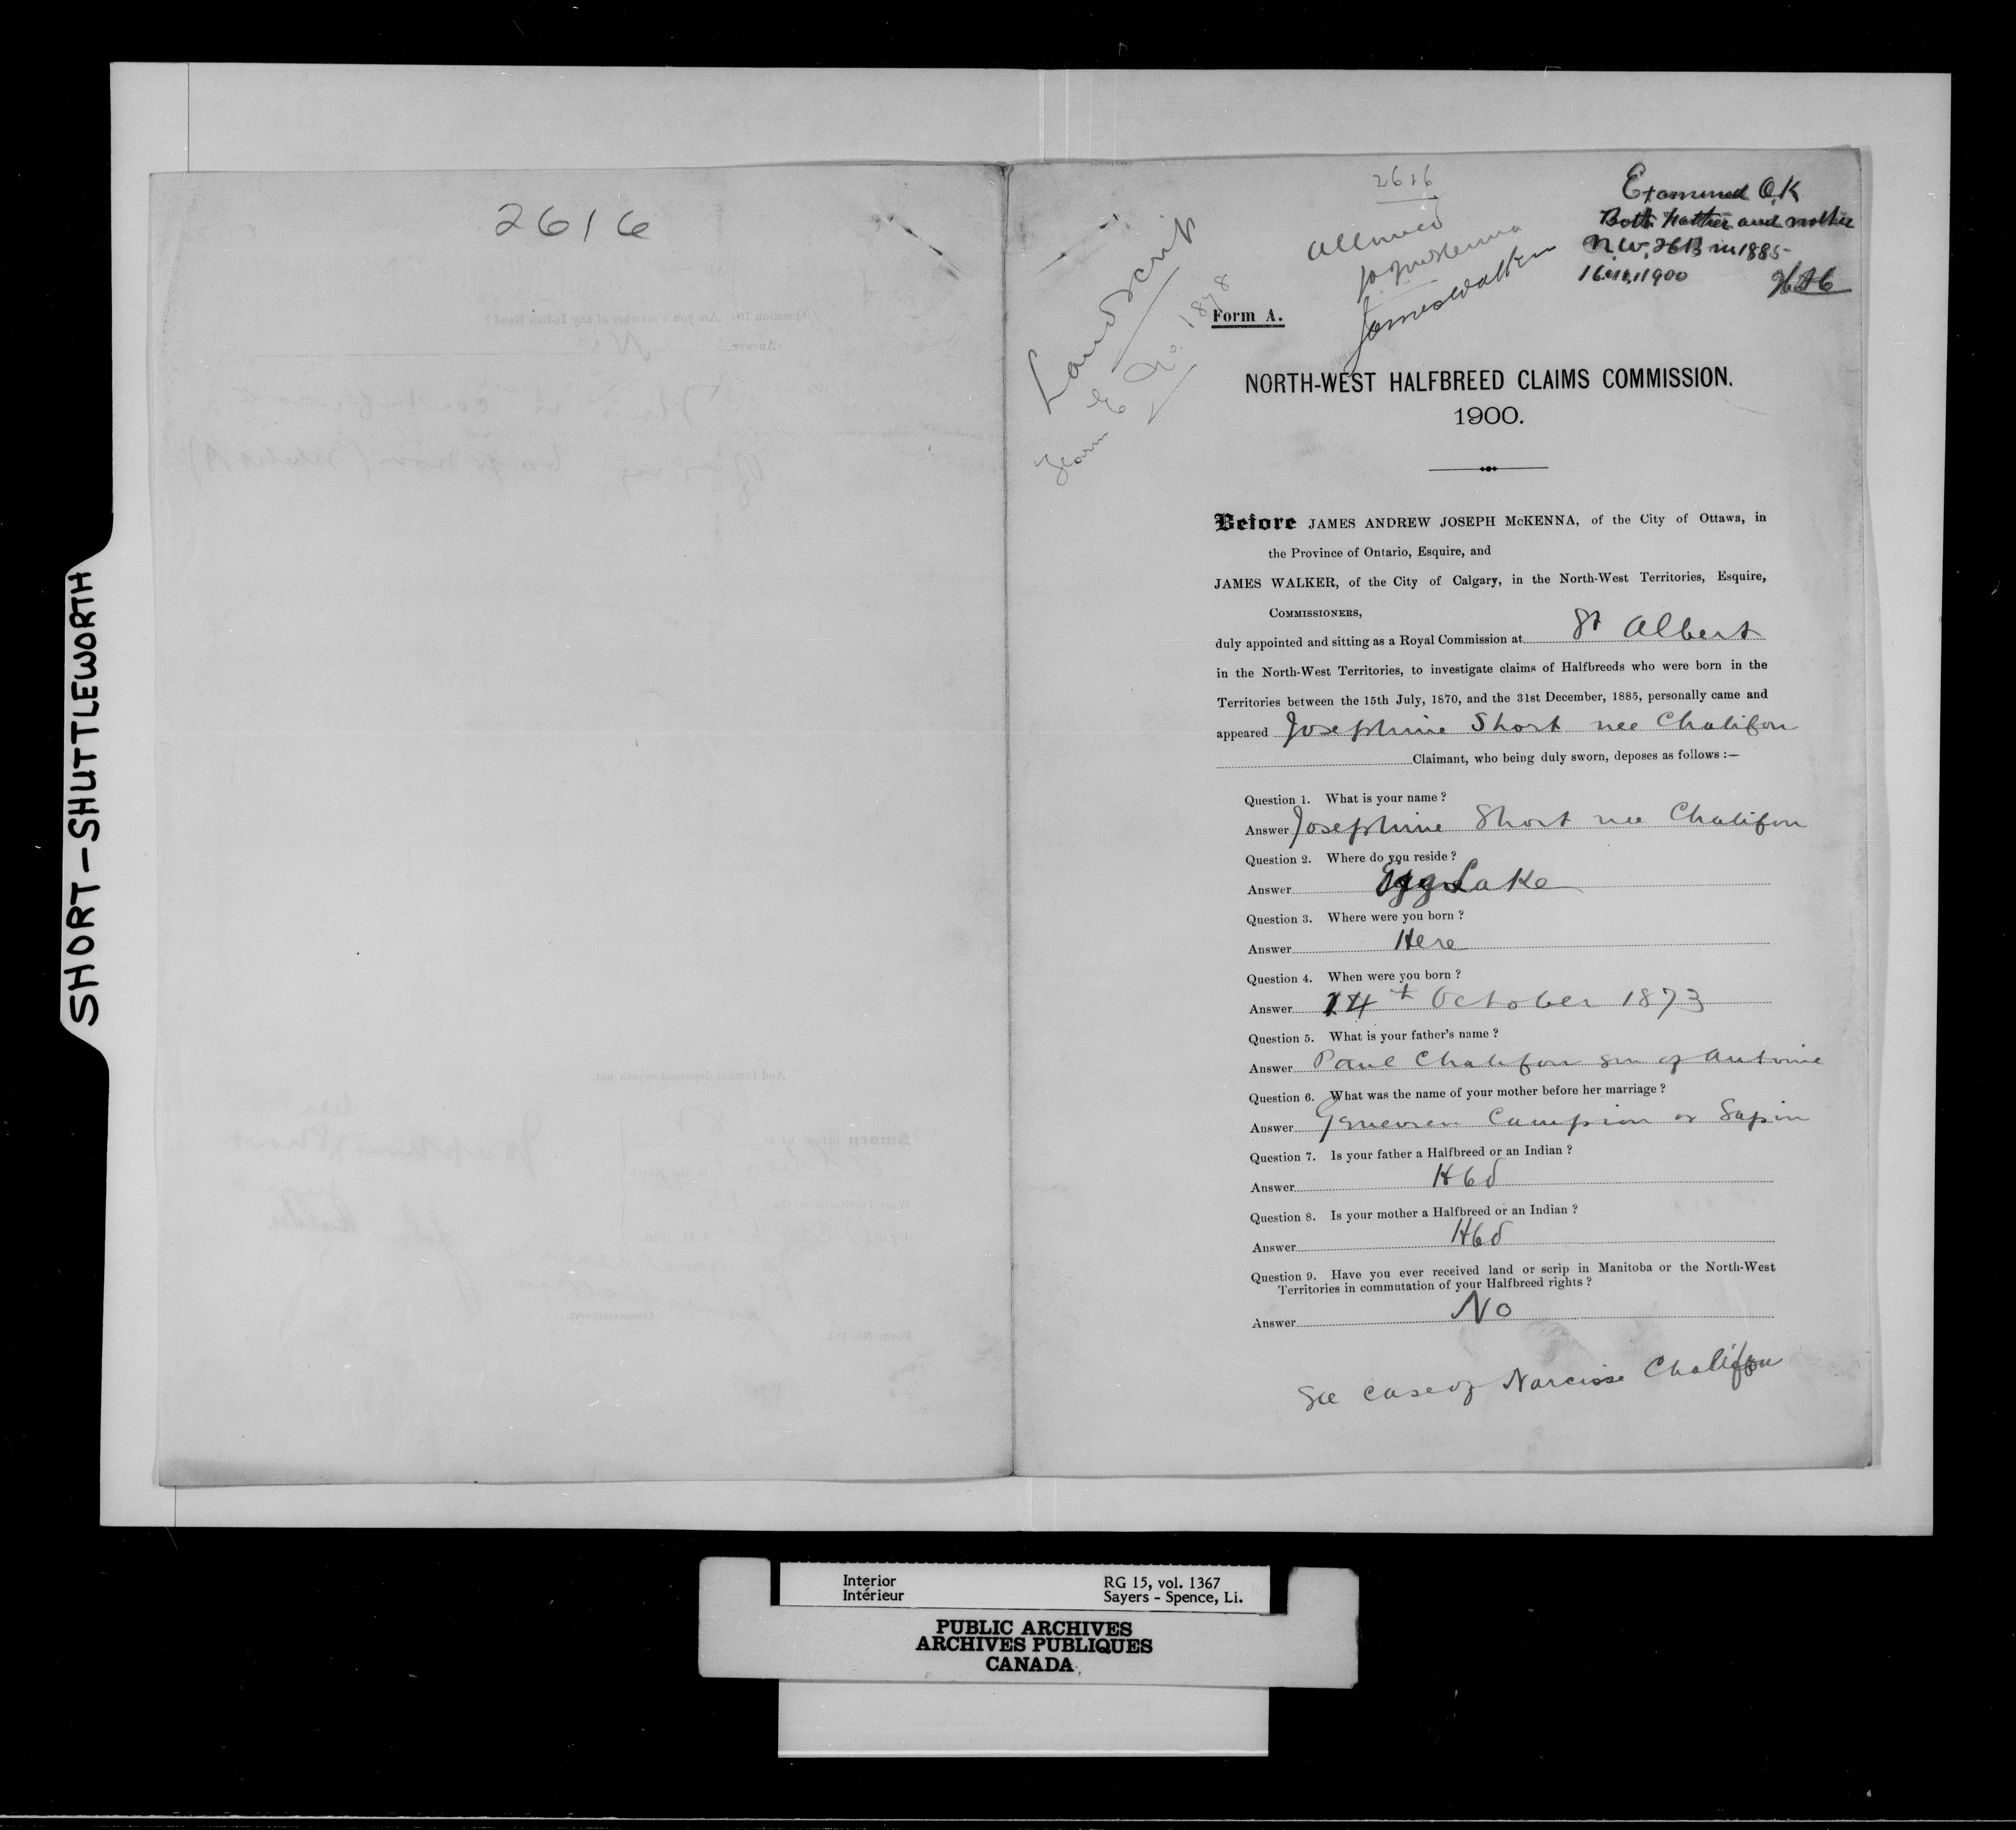 SHORT-SHUTTLEWORTH
2616
2616
Land Scrip
Form E No. 1878
Allowed
James Walker
Examined O.K
Both Father and mother
N.W. HB in 1885
1900
Form A.
NORTH-WEST HALFBREED CLAIMS COMMISSION.
1900.
Before JAMES ANDREW JOSEPH McKENNA, of the City of Ottawa, in
the Province of Ontario, Esquire, and
JAMES WALKER, of the City of Calgary, in the North-West Territories, Esquire,
COMMISSIONERS,
duly appointed and sitting as a Royal Commission at St Albert
in the North-West Territories, to investigate claims of Halfbreeds who were born in the
Territories between the 15th July, 1870, and the 31st December, 1885, personally came and
appeared Josephine Short nee Chalifou
Claimant, who being duly sworn, deposes as follows :—
Question 1. What is your name ?
Answer Josephine Short nee Chalifou
Question 2. Where do you reside ?
Answer Egg Lake
Question 3. Where were you born ?
Answer Here
Question 4. When were you born ?
Answer 14th October 1873
Question 5. What is your father's name ?
Answer Paul Chalifou son of Antoine
Question 6. What was the name of your mother before her marriage ?
Answer Campion or Sapin
Question 7. Is your father a Halfbreed or an Indian ?
Answer Hbd
Question 8. Is your mother a Halfbreed or an Indian ?
Answer Hbd
Question 9. Have you ever received land or scrip in Manitoba or the North-West
Territories in commutation of your Halfbreed rights ?
Answer No
See case of Narcisse Chalifou
Interior
Intérieur
RG 15, vol. 1367
Sayers - Spence, Li.
PUBLIC ARCHIVES
ARCHIVES PUBLIQUES
CANADA